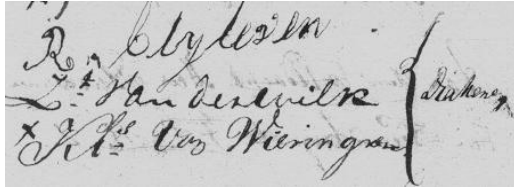 R. Clyleven
Z. Van der wilk
x Kls Van Wieringen
Diakenen